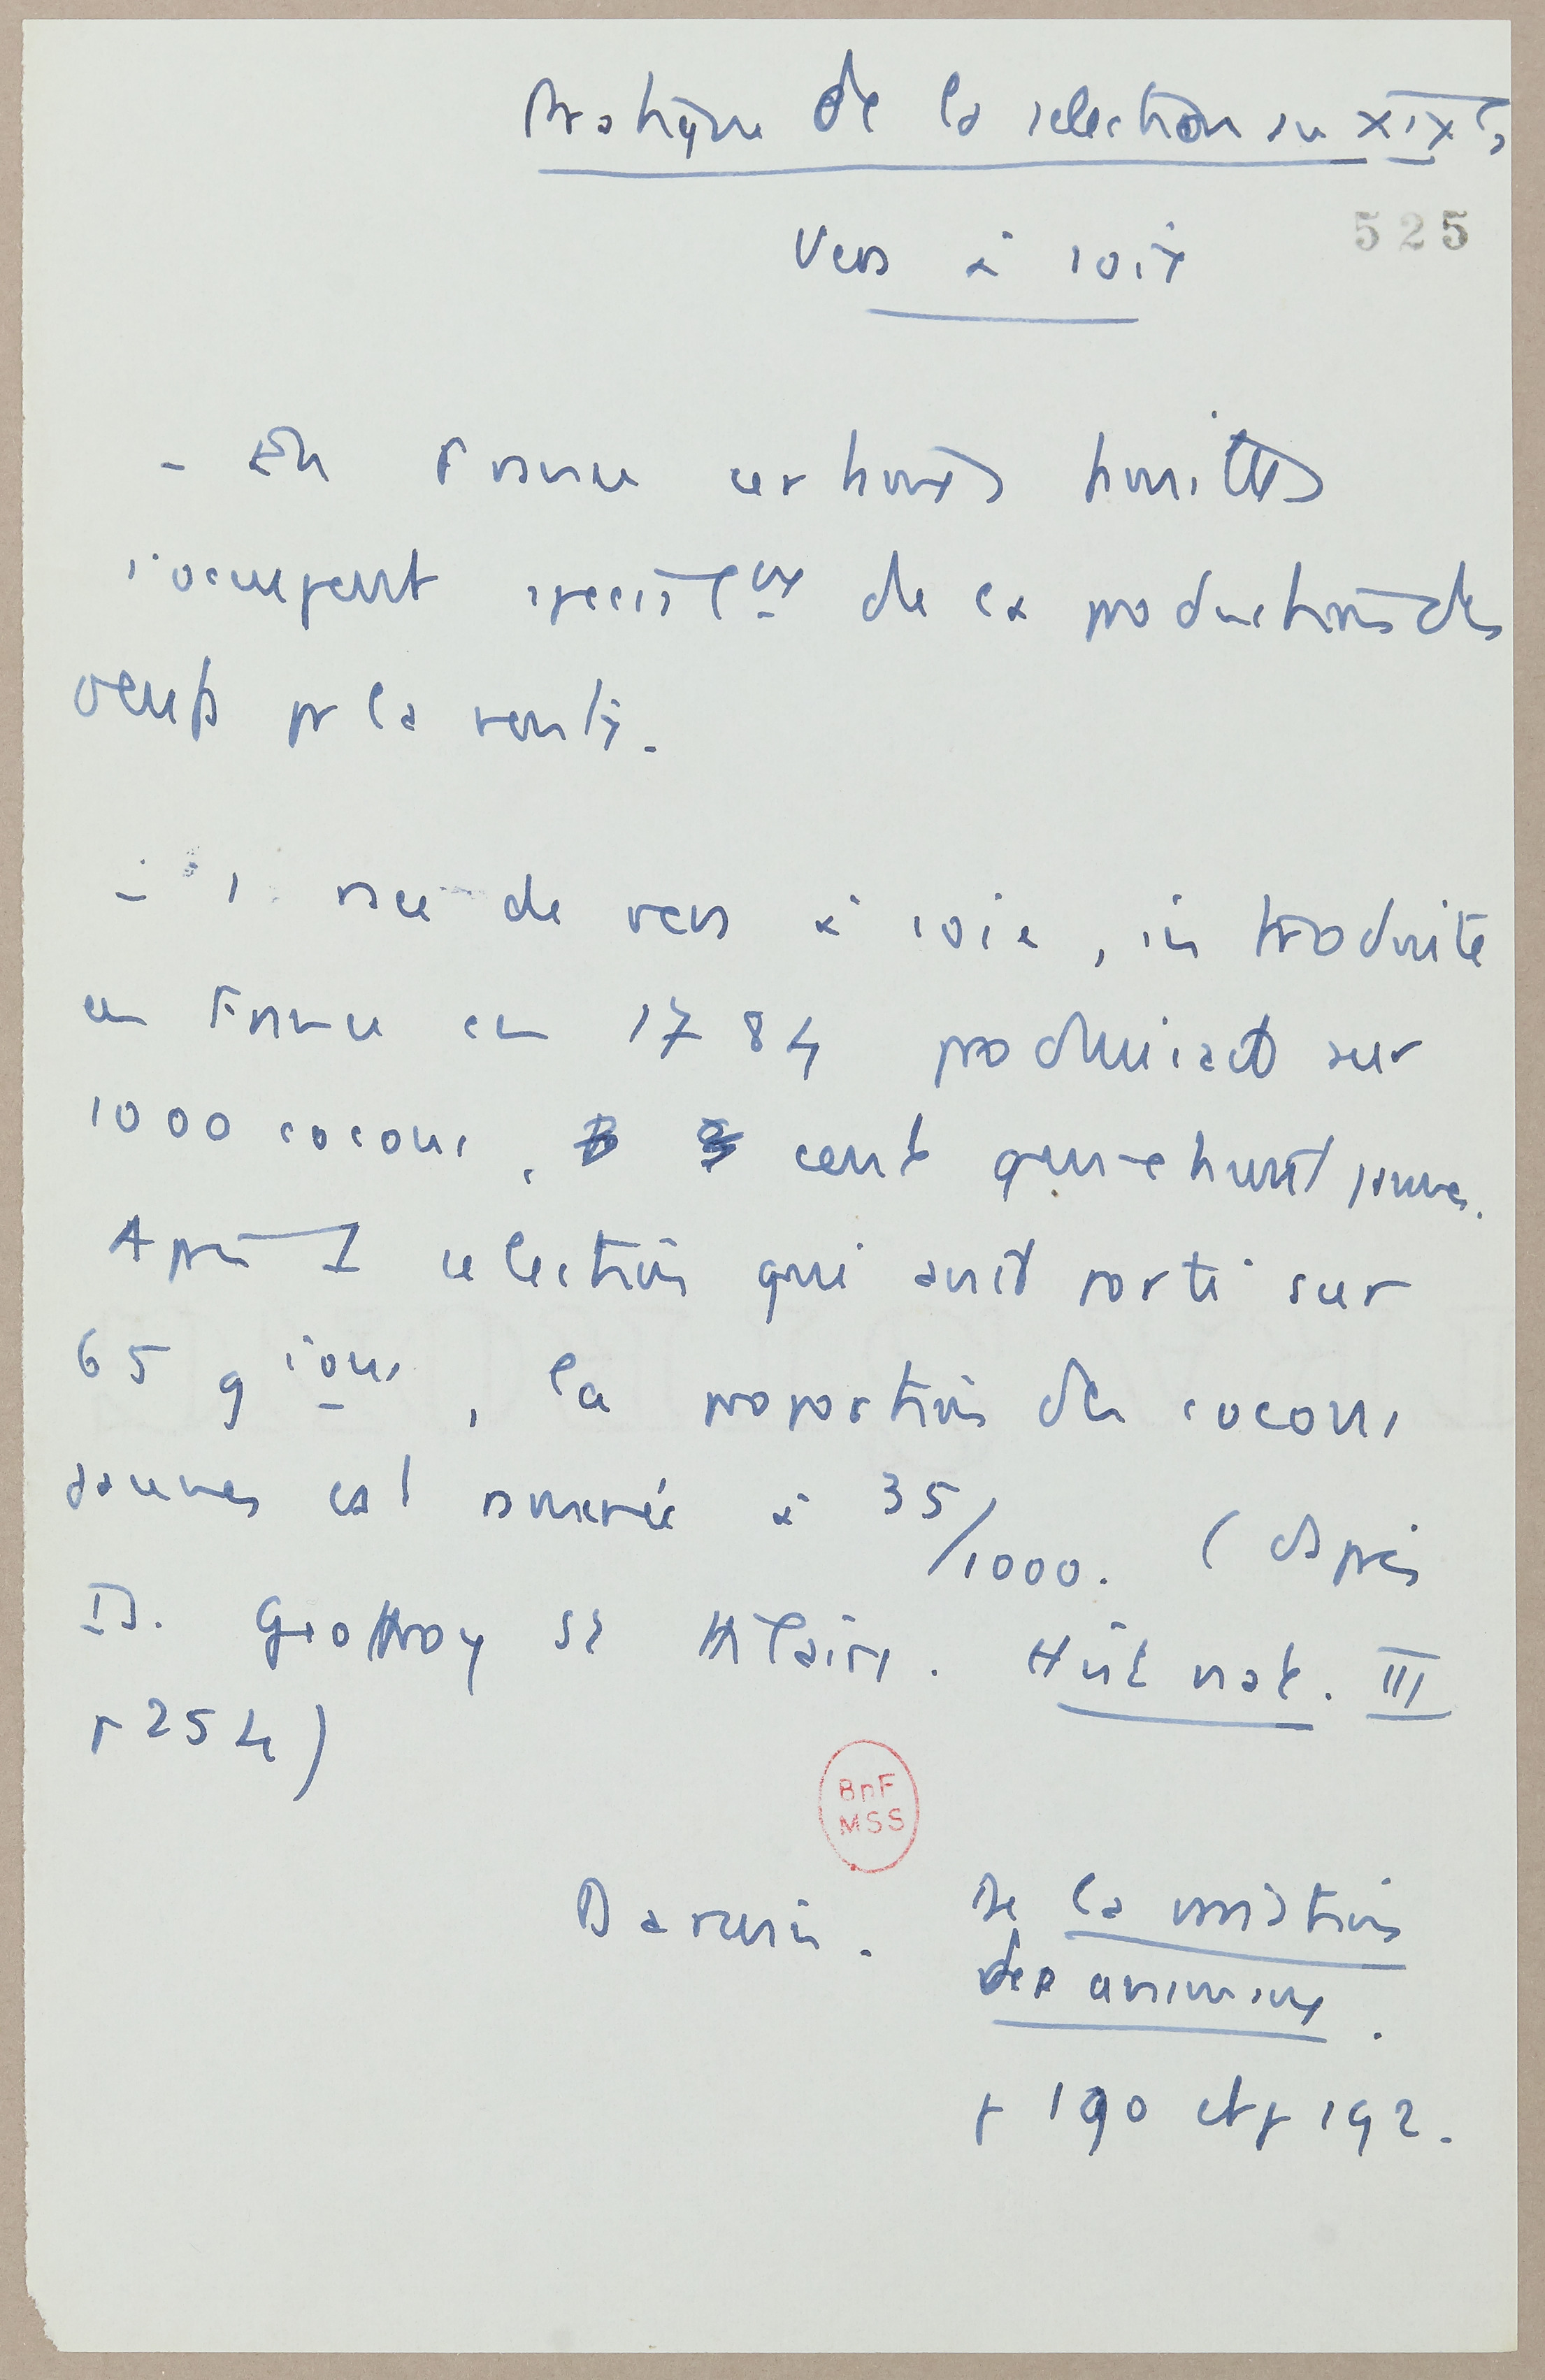 Pratique de la selection au XIXe s
525
Vers à soie
- En France certaines familles
s'occupent specialt de la production des
oeufs pr la vente.
- 1 race de vers à soie, introduite
en France en 1784 produisait sur
1000 cocons, cent jaunes.
Après 1 selection qui avait porté sur
65 gions, la proportion des cocons
jaunes est ramenée à 35/1000. (d'après
Is. Geoffroy St Hilaire. Hist nat. III
p 254)
BnF
MSS
Darwin. De la variation
des animaux.
p 190 et p 192.